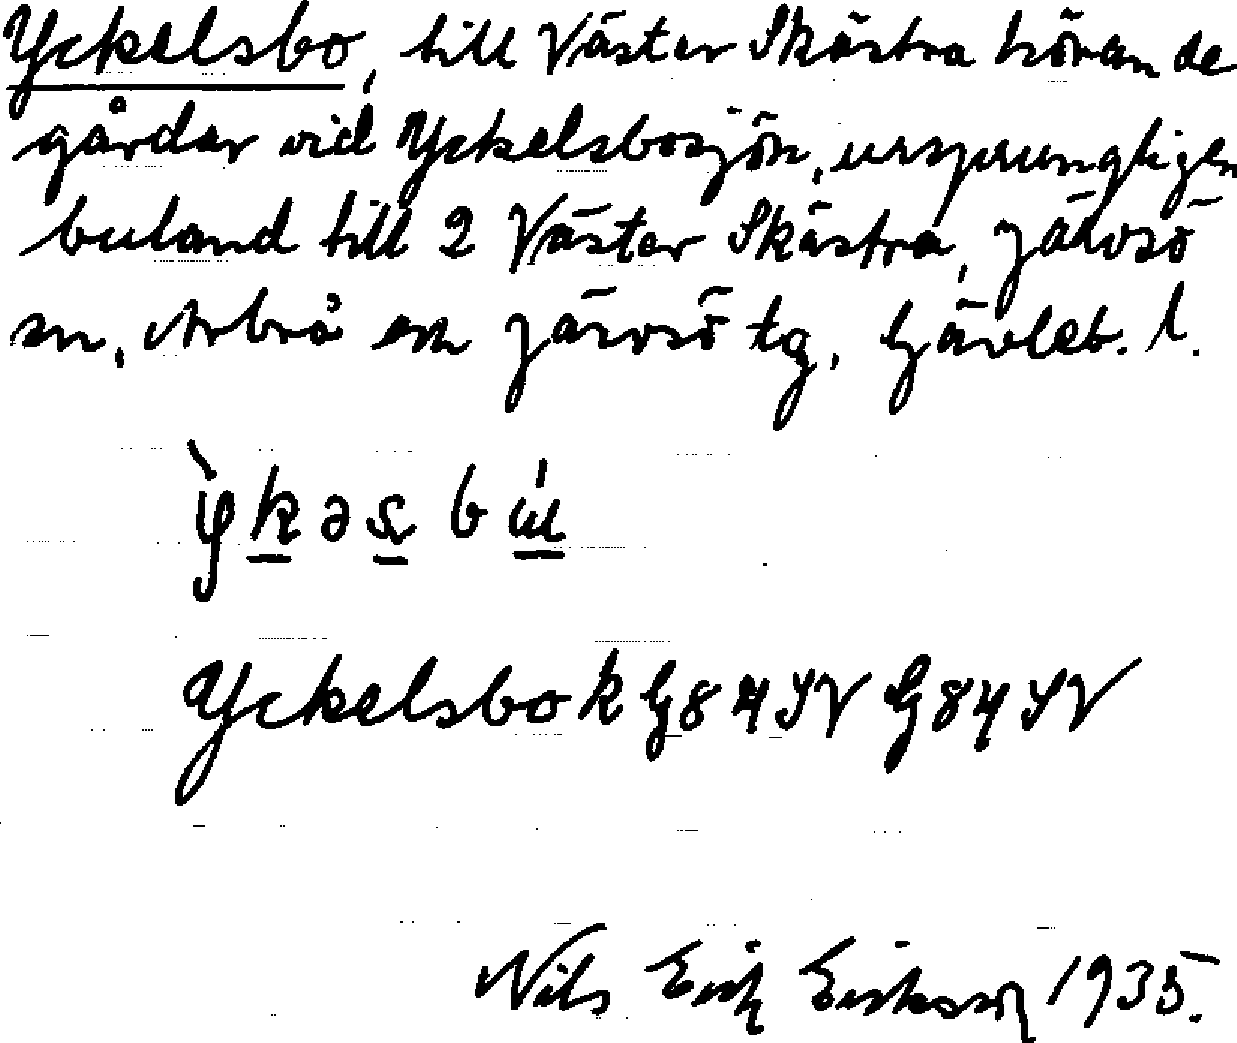 Yckelsbo, till Väster Skästra höran de
gårdar vid Yckelsbosjön, ursprungligen
buland till 2 Väster Skästra, Järvsö
sn, Arbrå och Järvsö tg, Gävleb. l.
Yckelsbo k G 84 SV G 84 SV
Nils Erik Eriksson 1935.